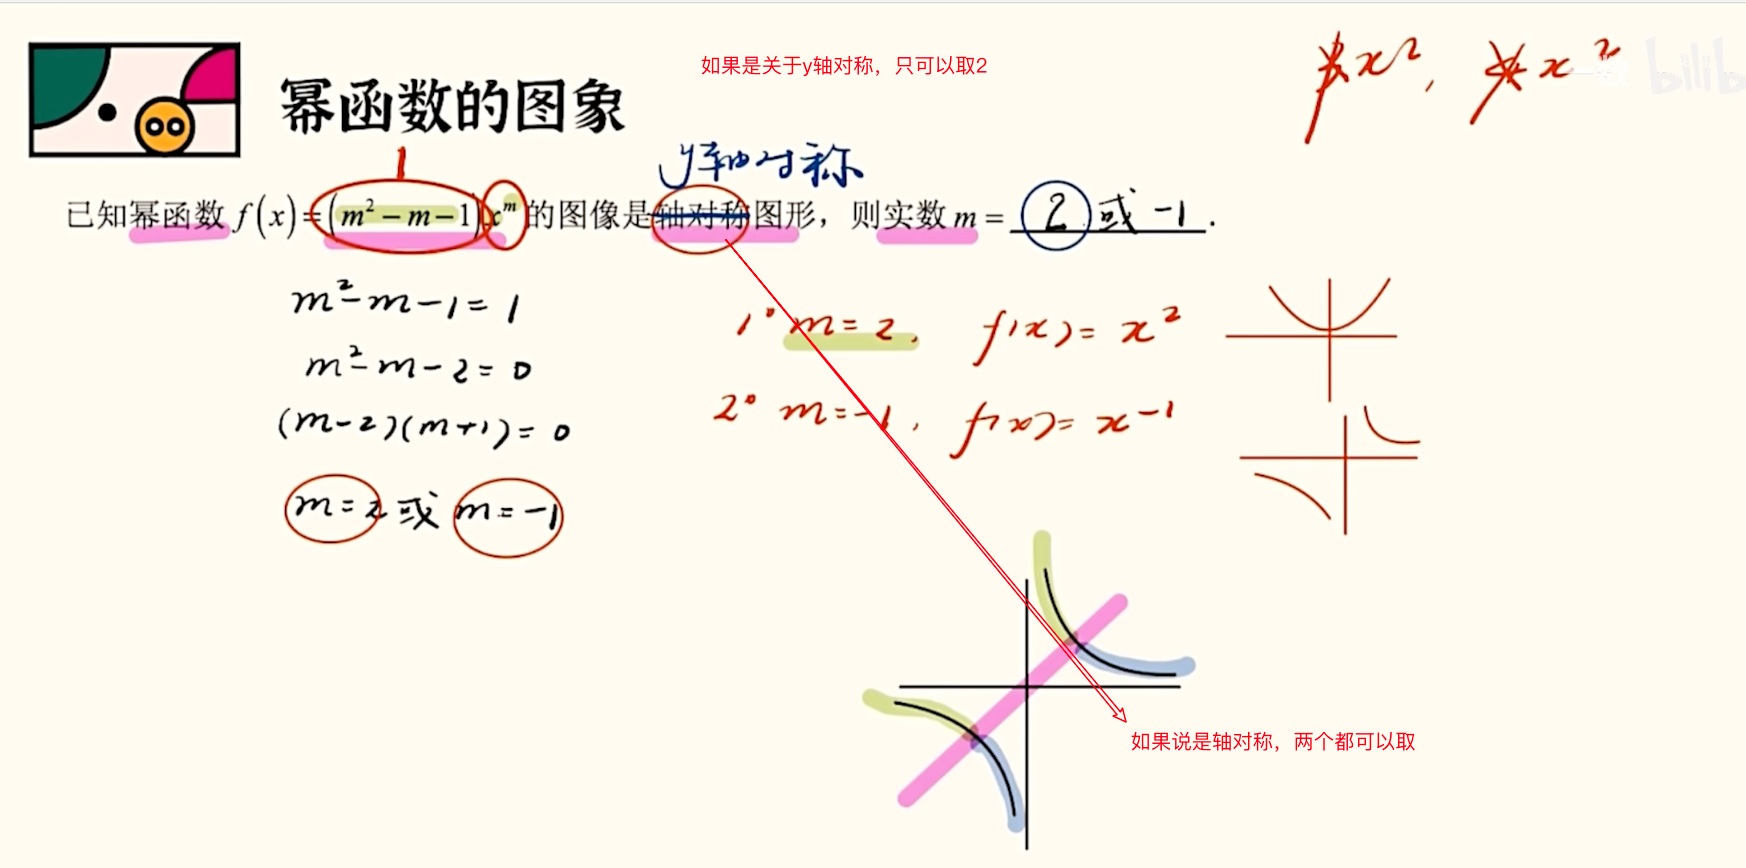 如果是关于y轴对称，只可以取2
x², x²
bilib
幂函数的图象
1
y轴对称
已知幂函数 f(x)=(m²−m−1)x^m 的图像是轴对称图形，则实数 m = 2或-1.
m²-m-1=1
m²-m-2=0
(m-2)(m+1)=0
m=2或m=-1
1° m=2, f(x)=x²
2° m=-1, f(x)=x⁻¹
如果说是轴对称，两个都可以取